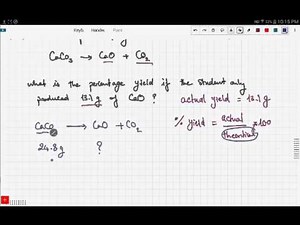 10:15 PM
CaCO₃ → CaO + CO₂
what is the percentage yield if the student only
produced 13.1 g of CaO ?
actual yield = 13.1 g
CaCO₃ → CaO + CO₂
24.8 g ?
% yield = actual / theoretical × 100